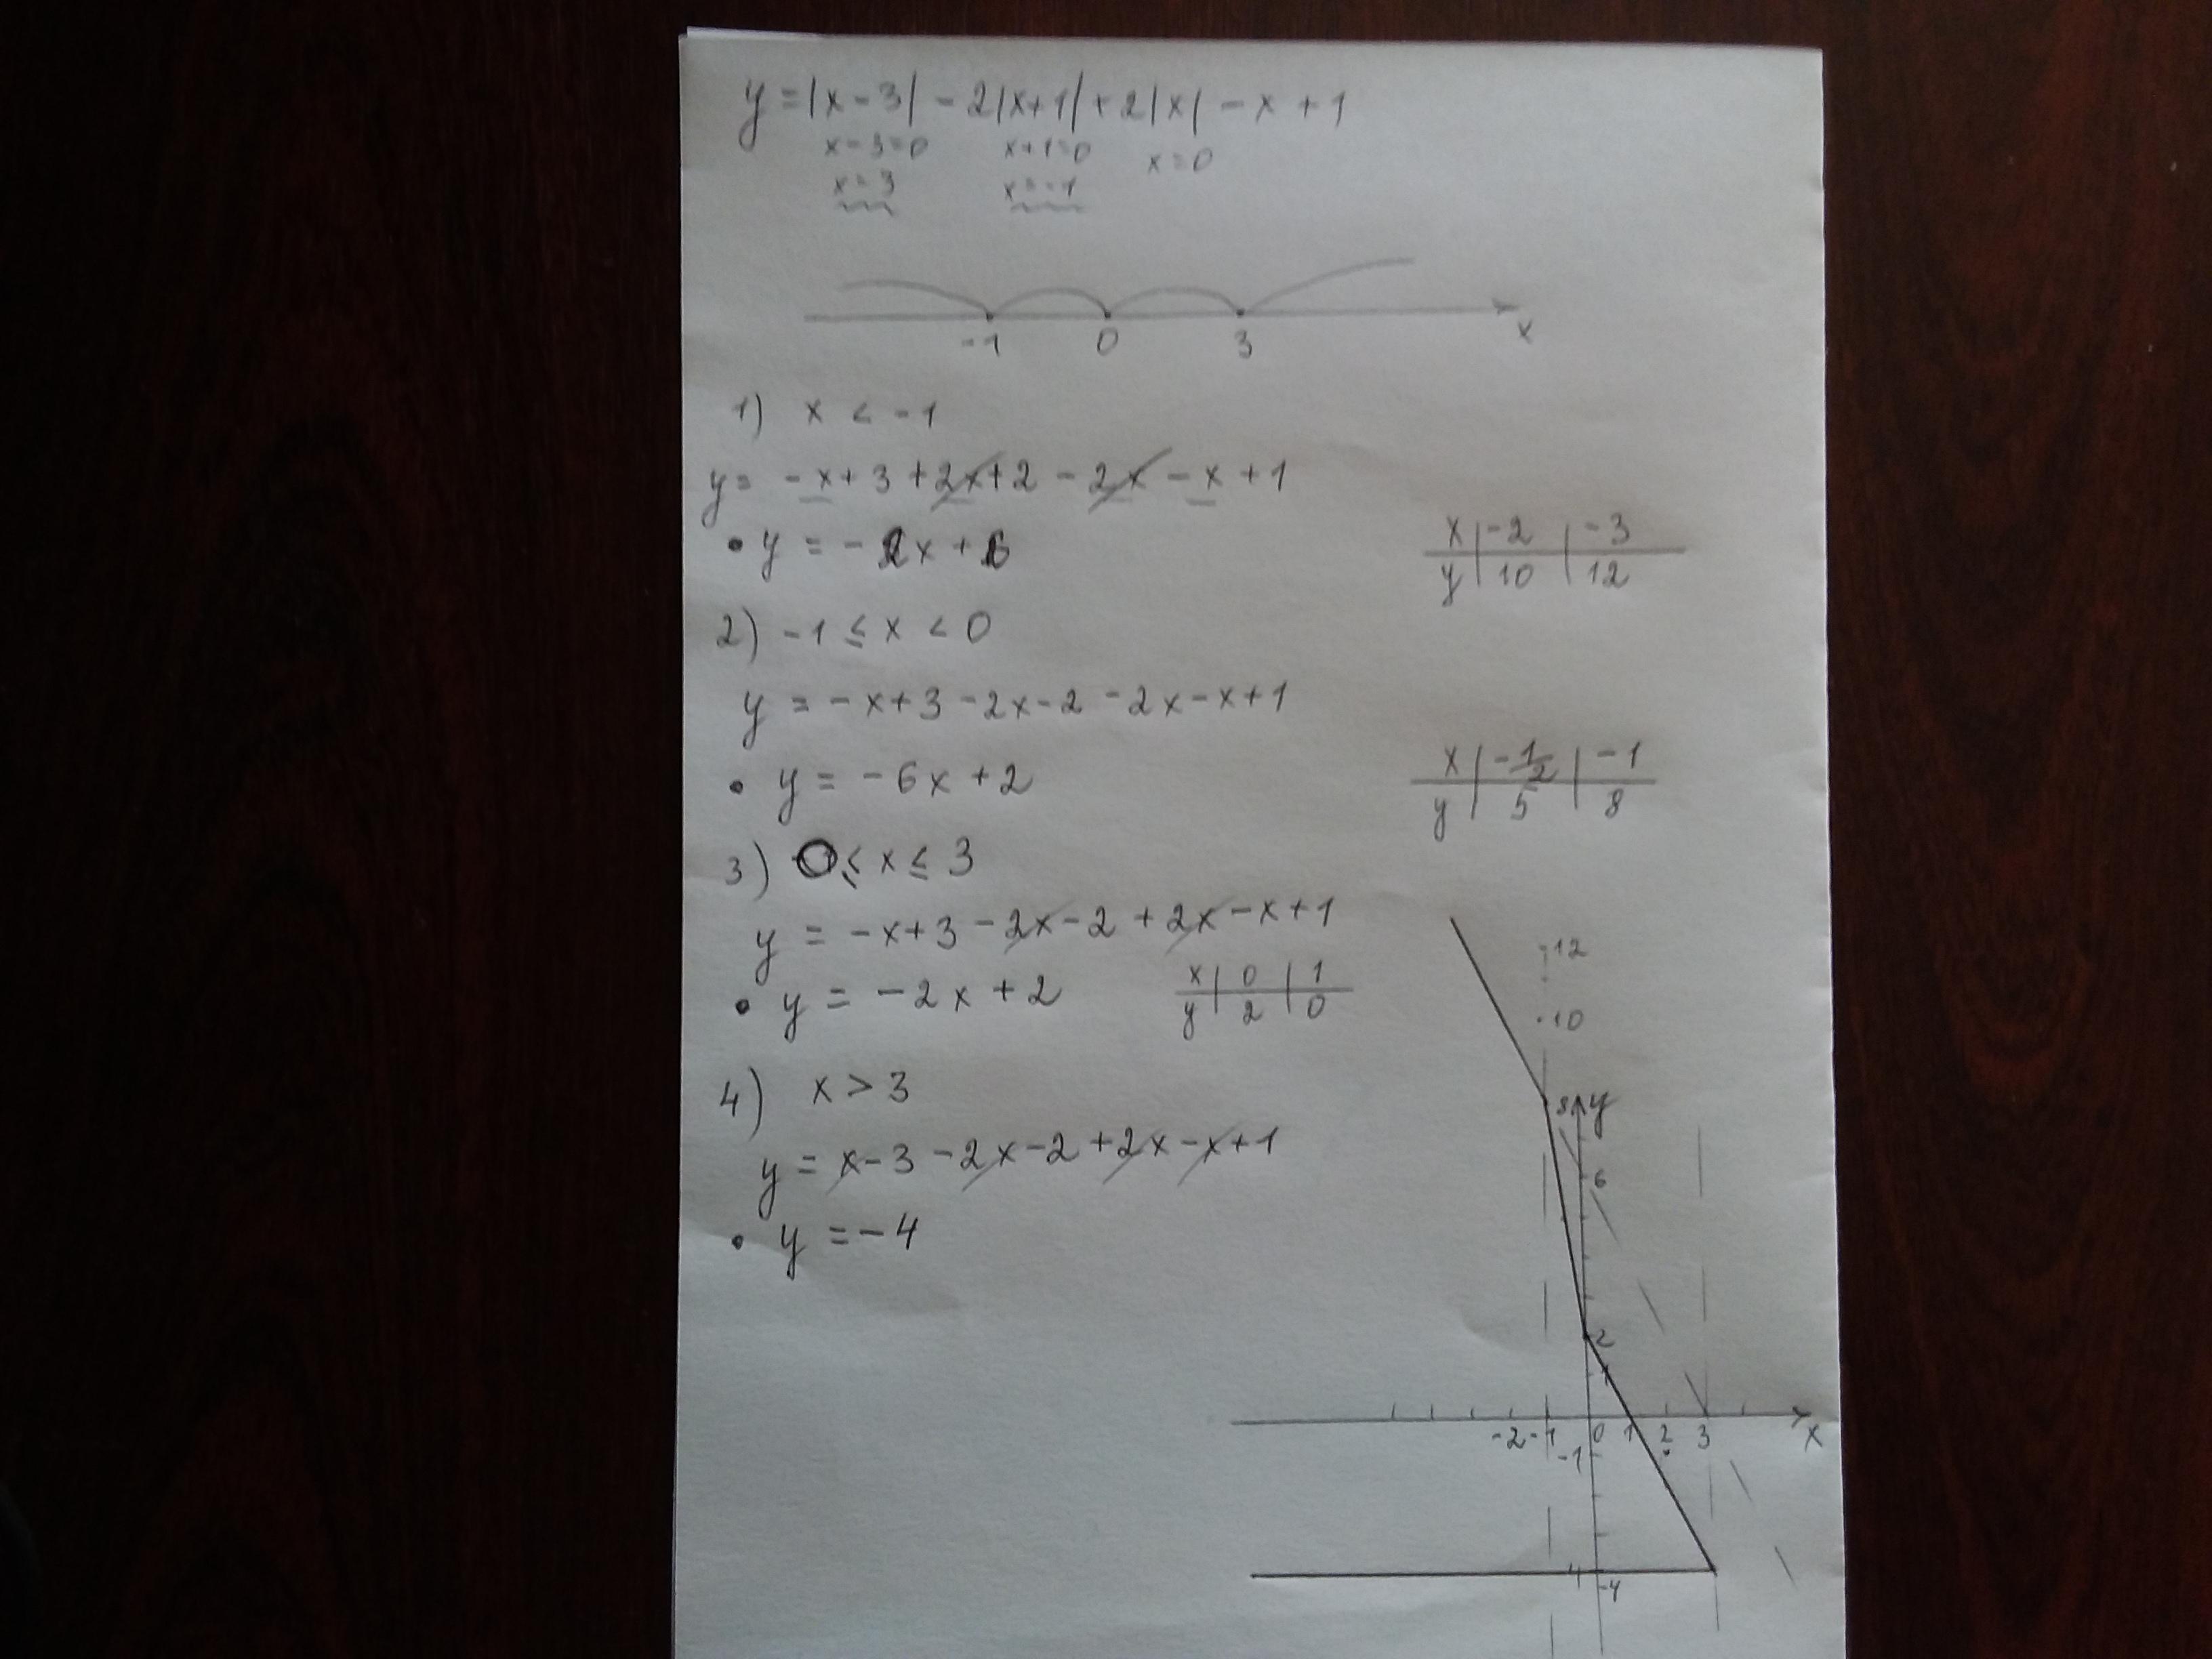 y = |x - 3| - 2|x+1| + 2|x| - x + 1
x - 3 = 0 x + 1 = 0 x = 0
x = 3 x = -1
-1 0 3 x
1) x < -1
y = -x + 3 + 2x + 2 - 2x - x + 1
• y = -2x + 6
x | -2 | -3
y | 10 | 12
2) -1 ≤ x < 0
y = -x + 3 - 2x - 2 - 2x - x + 1
• y = -6x + 2
x | -1/2 | -1
y | 5 | 8
3) 0 ≤ x ≤ 3
y = -x + 3 - 2x - 2 + 2x - x + 1
• y = -2x + 2
x | 0 | 1
y | 2 | 0
4) x > 3
y = x - 3 - 2x - 2 + 2x - x + 1
• y = -4
12
10
8 y
6
2
1
-2 -1 0 1 2 3 x
-1
-4